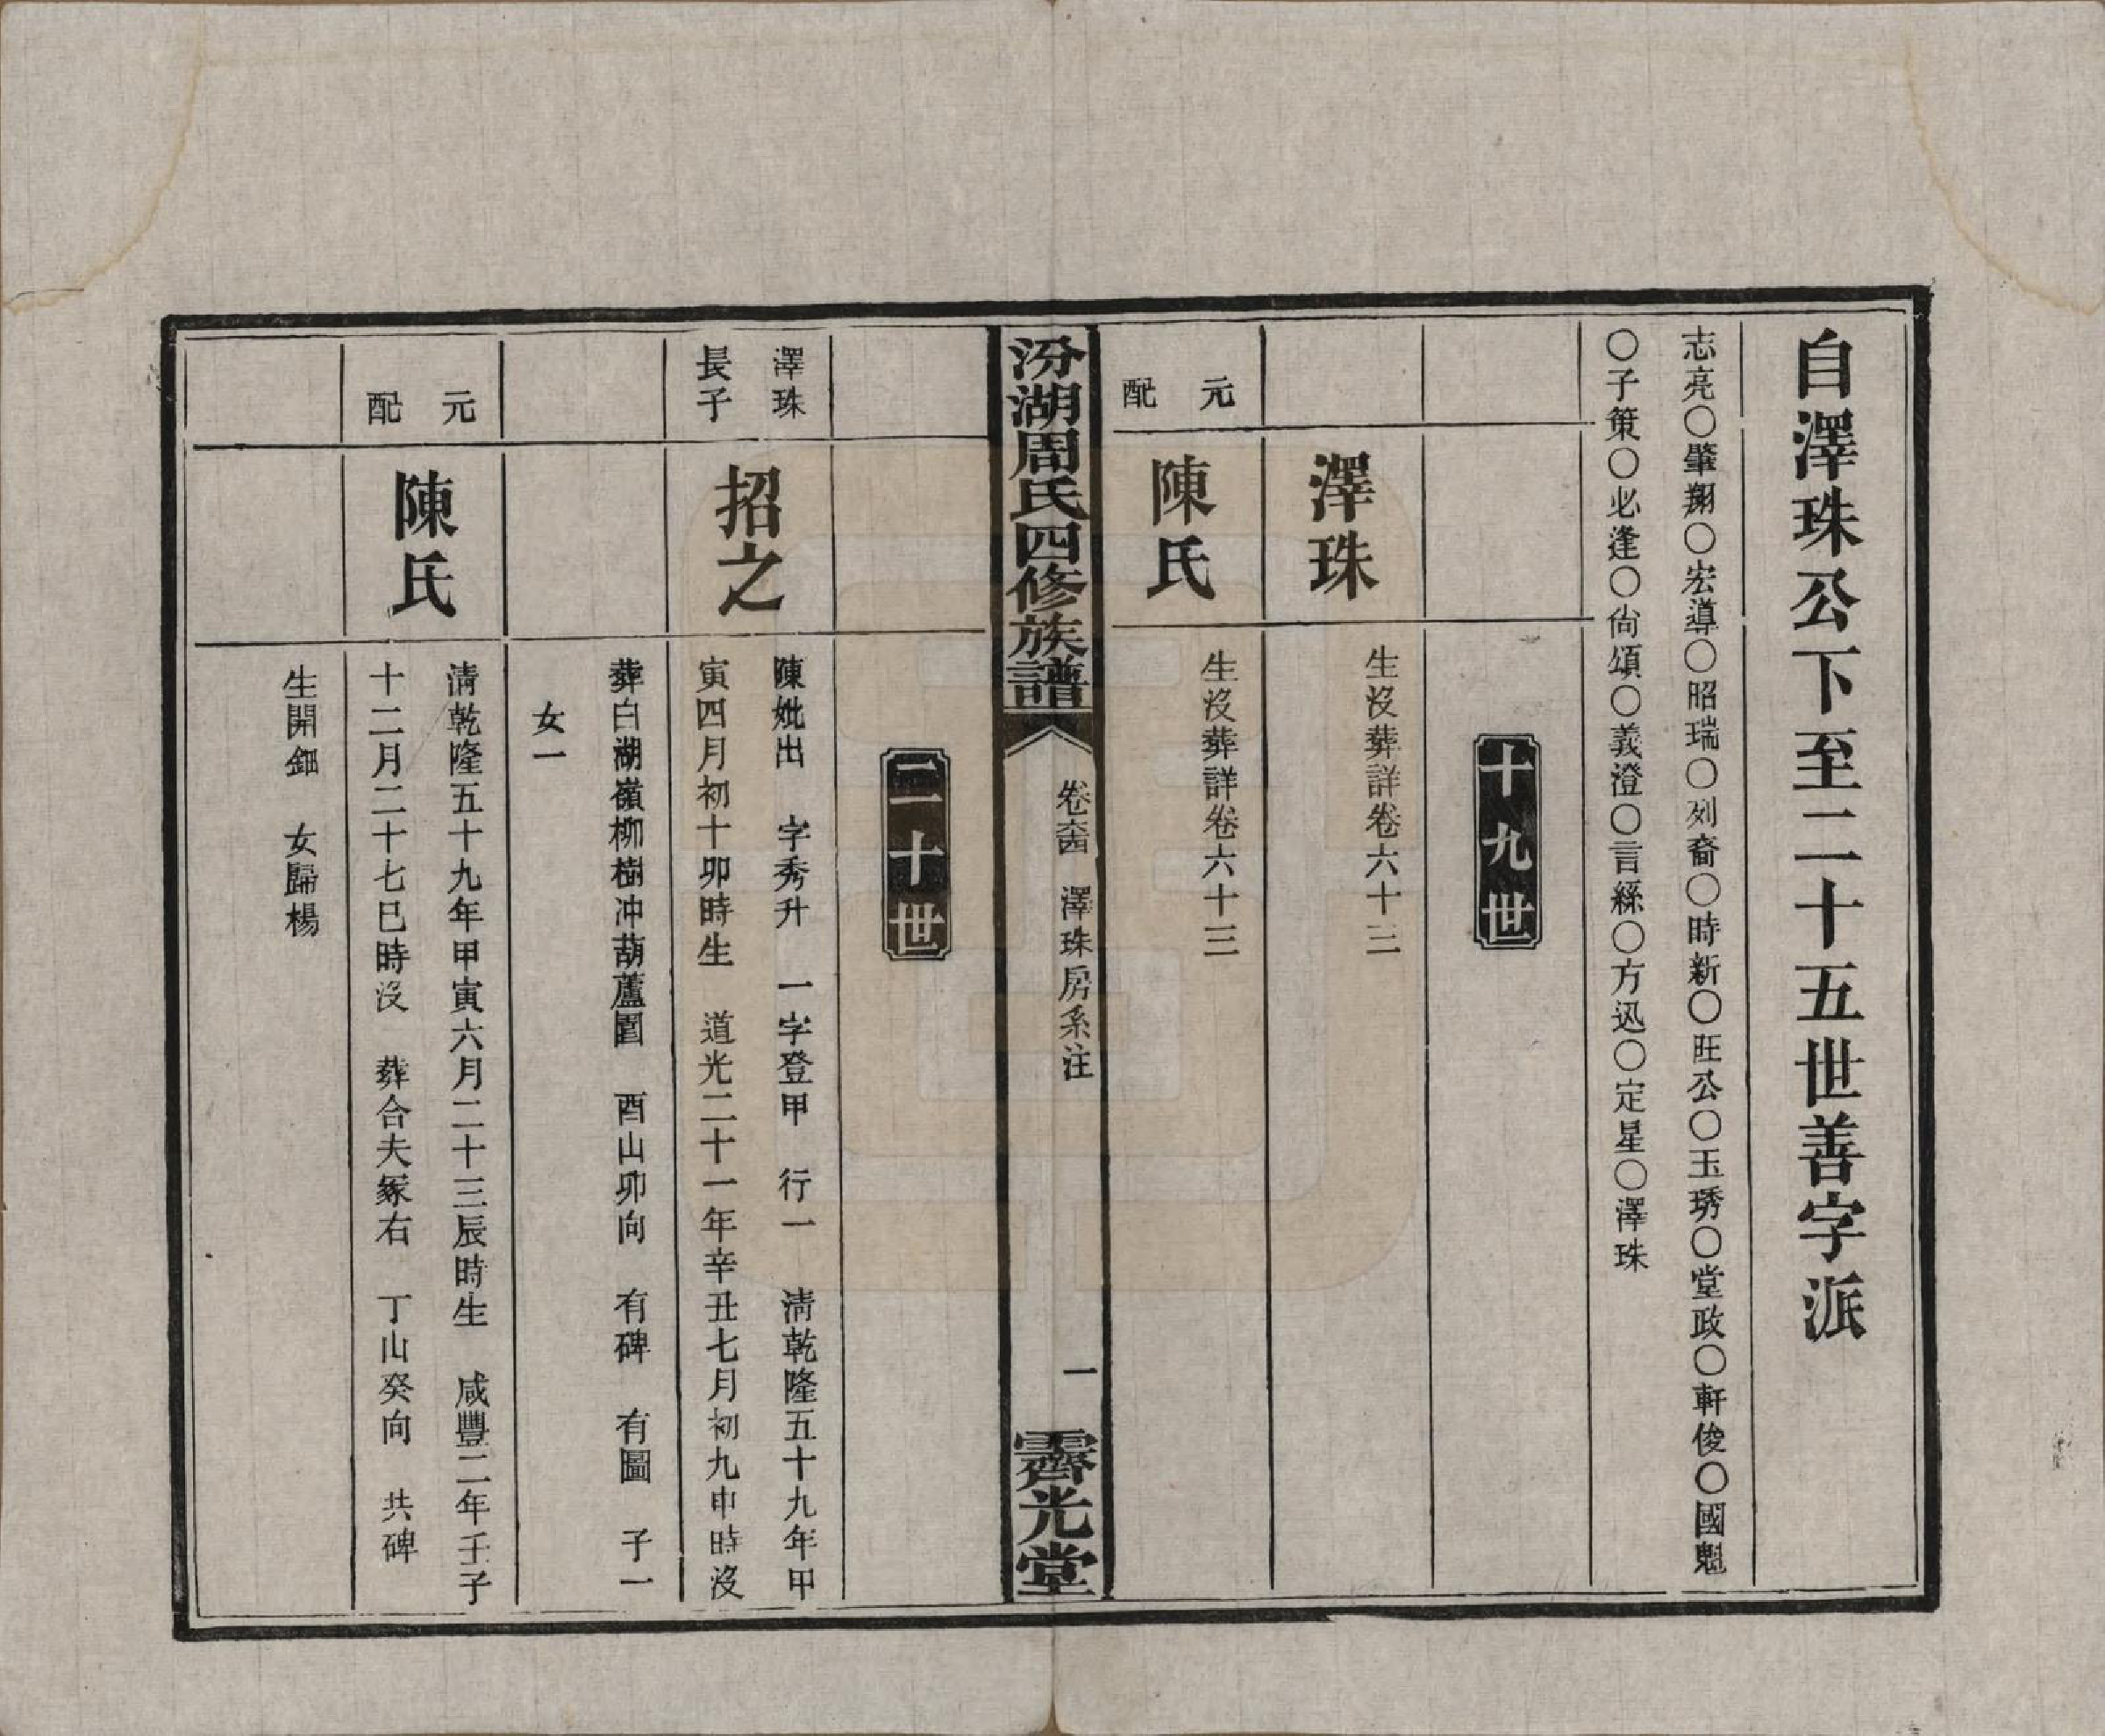 自澤珠公下至二十五世善字派
志亮〇肇翔〇宏導〇昭瑞〇列裔〇時新〇旺公〇玉琇〇堂政〇軒俊〇國魁
〇子策〇必逢〇尙頌〇義澄〇言綵〇方迅〇定星〇澤珠
十九世
澤珠
生沒葬詳卷六十三
元配
陳氏
生沒葬詳卷六十三
汾湖周氏四修族譜
卷六十四 澤珠房系注
一
霽光堂
二十世
澤珠長子
招之
陳妣出 字秀升 一字登甲 行一 淸乾隆五十九年甲
寅四月初十卯時生 道光二十一年辛丑七月初九申時沒
葬白湖嶺柳樹冲葫蘆園 酉山卯向 有碑 有圖 子一
女一
元配
陳氏
淸乾隆五十九年甲寅六月二十三辰時生 咸豐二年壬子
十二月二十七巳時沒 葬合夫冢右 丁山癸向 共碑
生開鈿 女歸楊